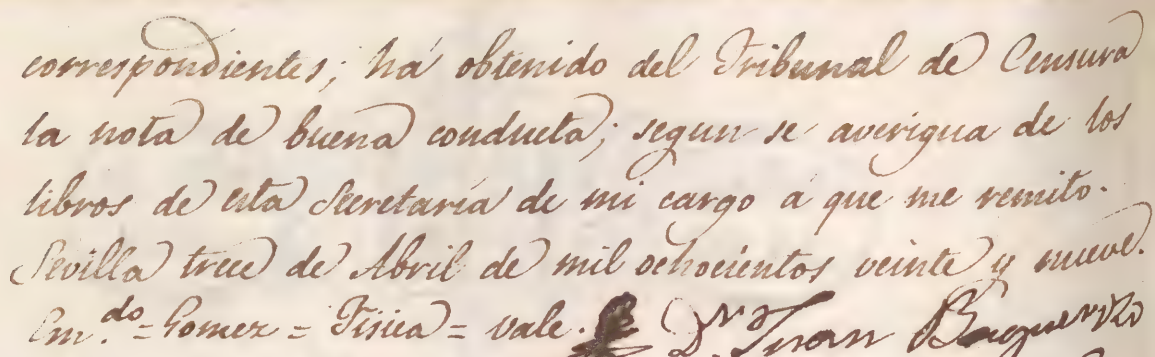 correspondientes; há obtenido del Tribunal de Censura
la nota de buena conducta; segun se averigua de los
libros de esta Secretaría de mi cargo á que me remito.
Sevilla trece de Abril de mil ochocientos veinte y nueve.
Em.do = Gomez = Fisica = vale. Dr. Juan